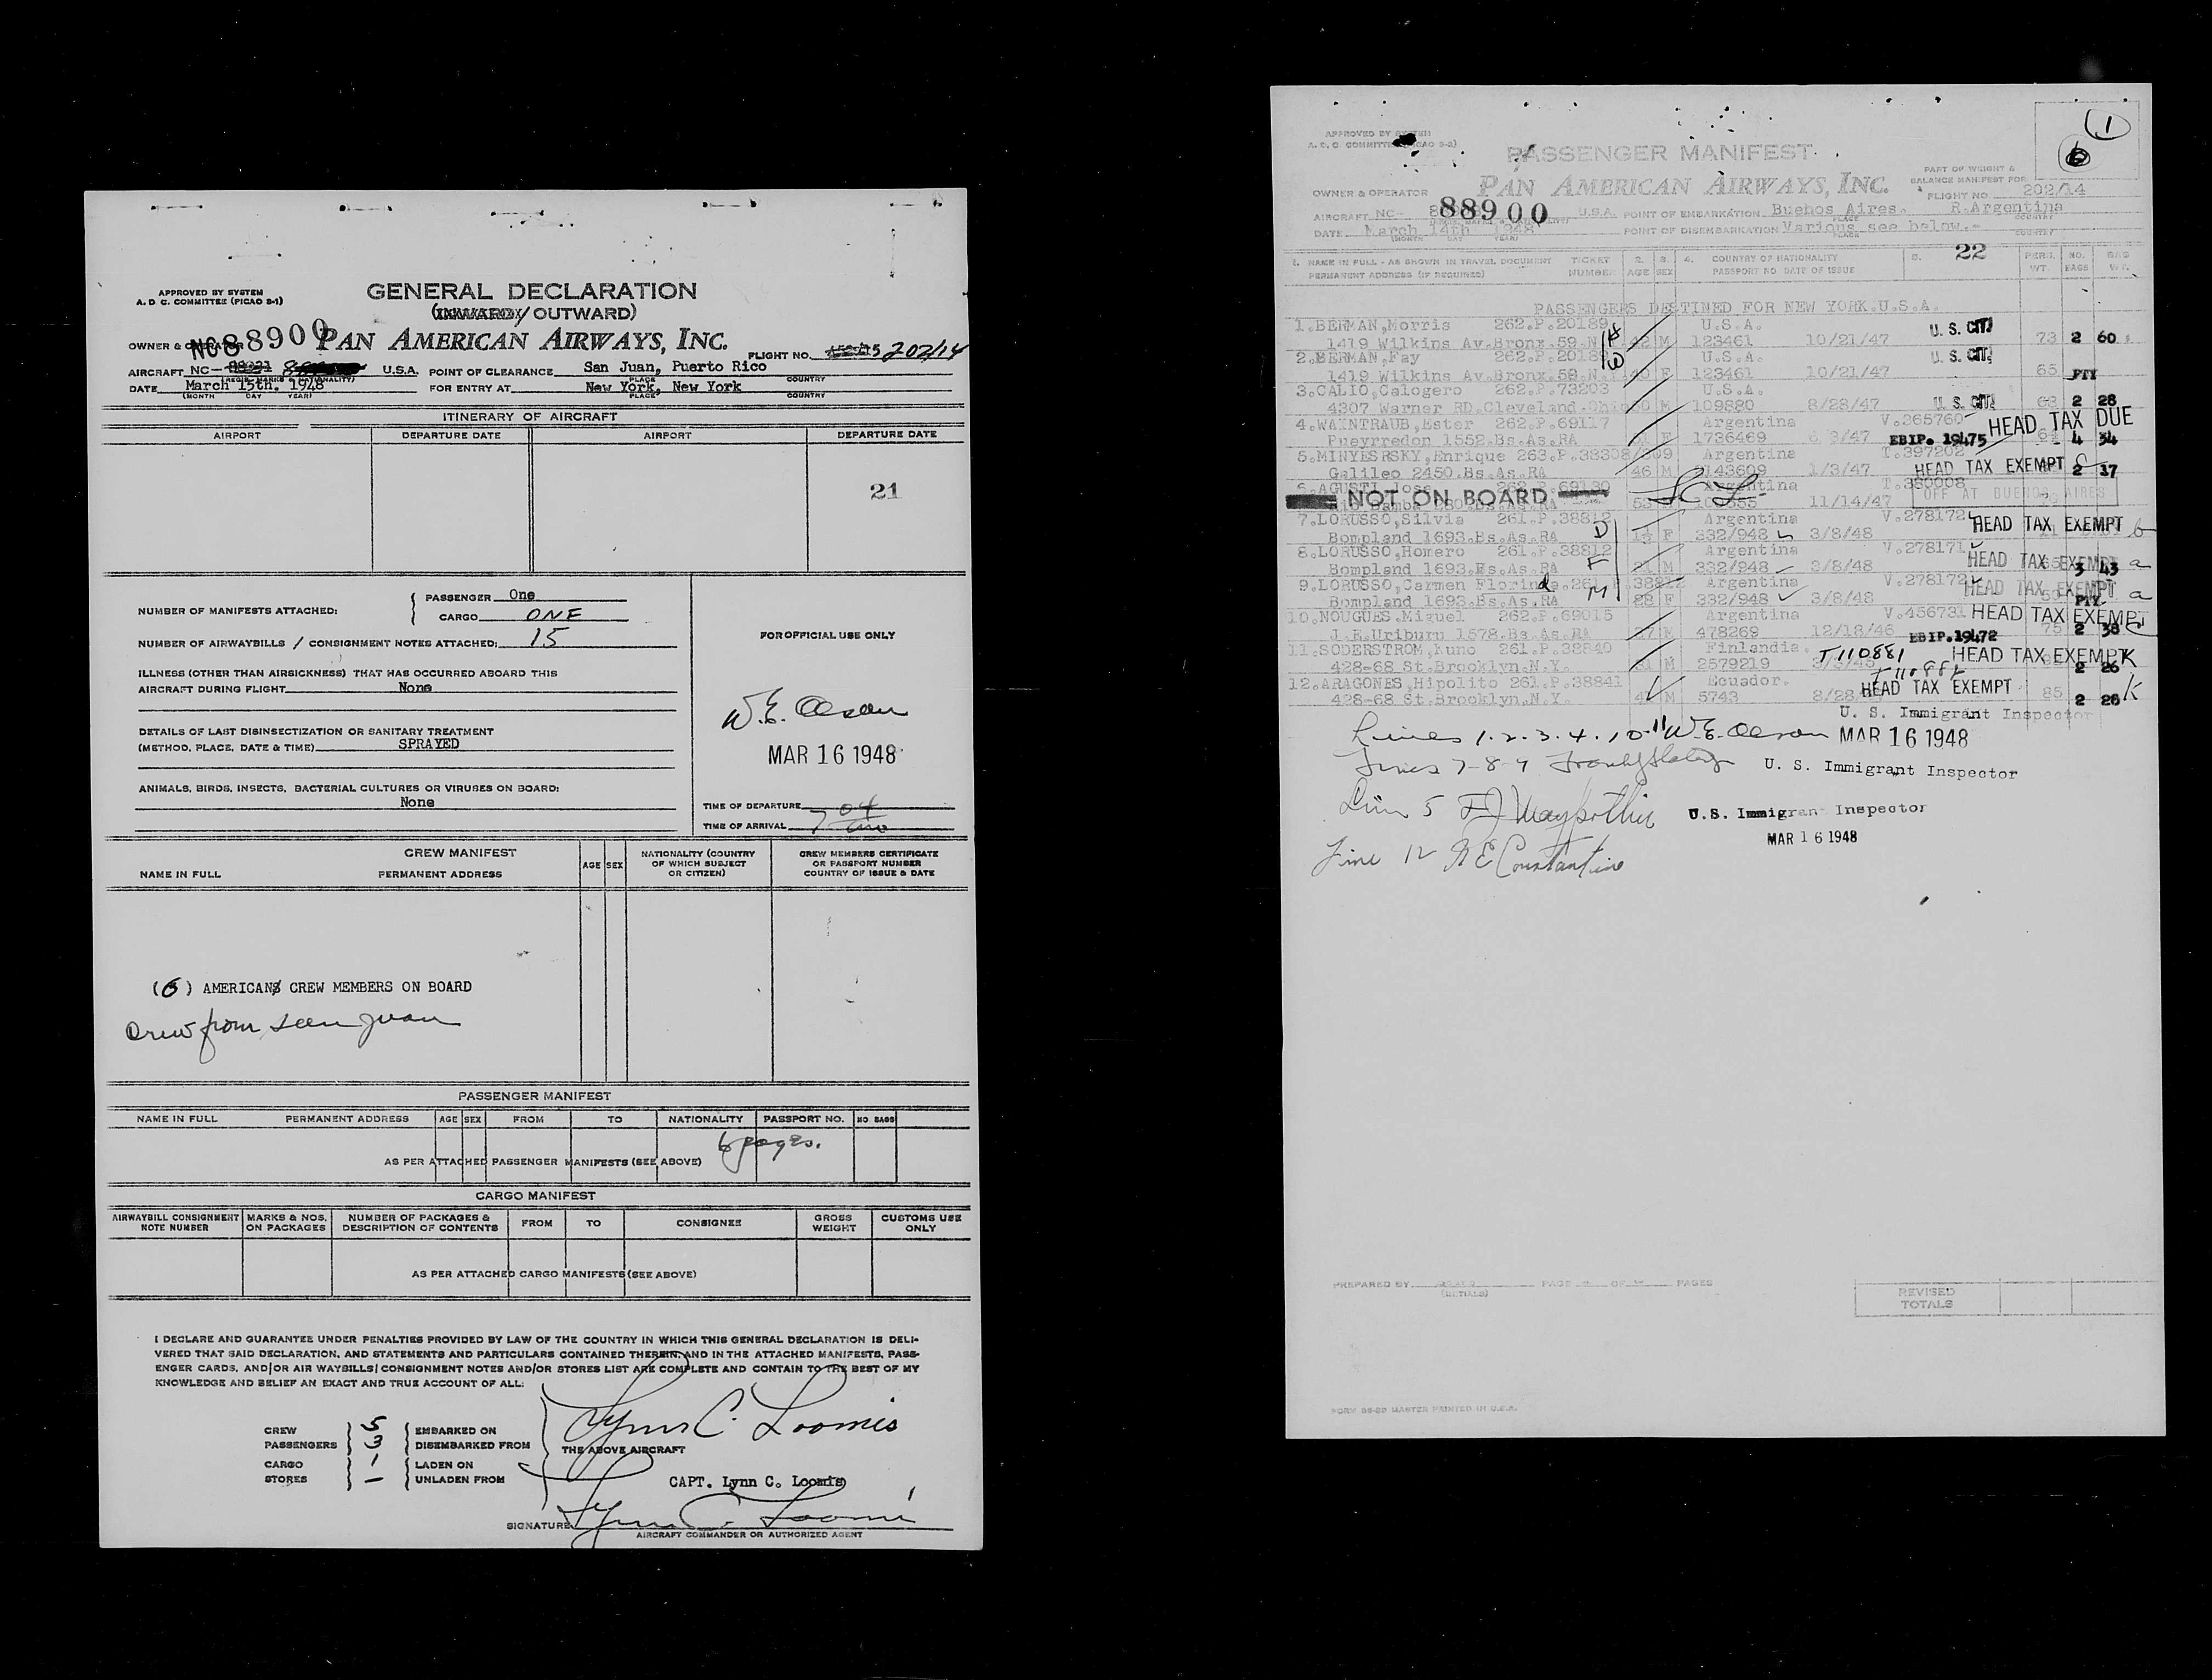 APPROVED BY SYSTEM
A. D. C. COMMITTEE (PICAO S-1)
GENERAL DECLARATION
(INWARD / OUTWARD)
OWNER & OPERATOR PAN AMERICAN AIRWAYS, INC.
NC 88900
FLIGHT NO. 202/14
AIRCRAFT NC- U.S.A. POINT OF CLEARANCE San Juan, Puerto Rico
(REGIS. MARKS & NATIONALITY) PLACE COUNTRY
DATE March 15th. 1948 FOR ENTRY AT New York, New York
(MONTH DAY YEAR) PLACE COUNTRY
ITINERARY OF AIRCRAFT
AIRPORT DEPARTURE DATE AIRPORT DEPARTURE DATE
21
NUMBER OF MANIFESTS ATTACHED: PASSENGER One
CARGO ONE
NUMBER OF AIRWAYBILLS / CONSIGNMENT NOTES ATTACHED: 15
ILLNESS (OTHER THAN AIRSICKNESS) THAT HAS OCCURRED ABOARD THIS
AIRCRAFT DURING FLIGHT None
DETAILS OF LAST DISINSECTIZATION OR SANITARY TREATMENT
(METHOD, PLACE, DATE & TIME) SPRAYED
ANIMALS, BIRDS, INSECTS, BACTERIAL CULTURES OR VIRUSES ON BOARD:
None
FOR OFFICIAL USE ONLY
W. E. Olson
MAR 16 1948
TIME OF DEPARTURE
TIME OF ARRIVAL 7 04
CREW MANIFEST
NAME IN FULL PERMANENT ADDRESS
AGE SEX
NATIONALITY (COUNTRY OF WHICH SUBJECT OR CITIZEN)
CREW MEMBERS CERTIFICATE OR PASSPORT NUMBER COUNTRY OF ISSUE & DATE
(6) AMERICANS CREW MEMBERS ON BOARD
Crew from San Juan
PASSENGER MANIFEST
NAME IN FULL PERMANENT ADDRESS AGE SEX FROM TO NATIONALITY PASSPORT NO. NO. BAGS
6 pages.
AS PER ATTACHED PASSENGER MANIFESTS (SEE ABOVE)
CARGO MANIFEST
AIRWAYBILL CONSIGNMENT NOTE NUMBER
MARKS & NOS. ON PACKAGES
NUMBER OF PACKAGES & DESCRIPTION OF CONTENTS
FROM TO CONSIGNEE
GROSS WEIGHT
CUSTOMS USE ONLY
AS PER ATTACHED CARGO MANIFESTS (SEE ABOVE)
I DECLARE AND GUARANTEE UNDER PENALTIES PROVIDED BY LAW OF THE COUNTRY IN WHICH THIS GENERAL DECLARATION IS DELI-
VERED THAT SAID DECLARATION, AND STATEMENTS AND PARTICULARS CONTAINED THEREIN, AND IN THE ATTACHED MANIFESTS, PASS-
ENGER CARDS, AND/OR AIR WAYBILLS/ CONSIGNMENT NOTES AND/OR STORES LIST ARE COMPLETE AND CONTAIN TO THE BEST OF MY
KNOWLEDGE AND BELIEF AN EXACT AND TRUE ACCOUNT OF ALL:
CREW 5 EMBARKED ON
PASSENGERS 3 DISEMBARKED FROM
CARGO 1 LADEN ON
STORES — UNLADEN FROM
Lynn C. Loomis
THE ABOVE AIRCRAFT
CAPT. Lynn C. Loomis
SIGNATURE Lynn C. Loomis
AIRCRAFT COMMANDER OR AUTHORIZED AGENT
1
6
APPROVED BY SYSTEM
A. D. C. COMMITTEE (PICAO S-2)
PASSENGER MANIFEST
PART OF WEIGHT & BALANCE MANIFEST FOR
OWNER & OPERATOR PAN AMERICAN AIRWAYS, INC.
FLIGHT NO. 202/14
AIRCRAFT NC- 88900 U.S.A. POINT OF EMBARKATION Buenos Aires. R.Argentina
DATE March 14th 1948 POINT OF DISEMBARKATION Various see below.-
22
1. NAME IN FULL - AS SHOWN IN TRAVEL DOCUMENT TICKET 2. 3. 4. COUNTRY OF NATIONALITY 5. PERS. NO. BAG
PERMANENT ADDRESS (IF REQUIRED) NUMBER AGE SEX PASSPORT NO DATE OF ISSUE WT. BAGS WT.
PASSENGERS DESTINED FOR NEW YORK.U.S.A.
1.BERMAN,Morris 262.P.20189 H U.S.A. U. S. CIT.
1419 Wilkins Av.Bronx.59.N 42 M 123461 10/21/47 73 2 60
2.BERMAN,Fay 262.P.2018 W U.S.A. U. S. CIT.
1419 Wilkins Av.Bronx.59.N. 40 F 123461 10/21/47 65 PTY
3.CALIO,Calogero 262.P.73203 U.S.A. U. S. CIT.
4307 Warner RD.Cleveland.Ohio 60 M 109880 8/23/47 2 28
4.WAINTRAUB,Ester 262.P.69117 Argentina V.365760 HEAD TAX DUE
Pueyrredon 1552.Bs.As.RA F 1736469 EBIP. 19475 4 34
5.MINYERSKY,Enrique 263.P.38308/309 Argentina T.397202
Galileo 2450.Bs.As.RA 46 M 143609 1/3/47 HEAD TAX EXEMPT 2 37
6.AGUSTI,Jose 262.P.69130 Argentina T.380008
NOT ON BOARD 11/14/47 OFF AT BUENOS AIRES
7.LORUSSO,Silvia 261.P.38812 D Argentina V.278172 HEAD TAX EXEMPT b
Bompland 1693.Bs.As.RA F 332/948 3/8/48
8.LORUSSO,Homero 261.P.38812 F Argentina V.278171 HEAD TAX EXEMPT a
Bompland 1693.Bs.As.RA 31 M 332/948 3/8/48 3 43
9.LORUSSO,Carmen Florinda.261.P.38812 M Argentina V.278172 HEAD TAX EXEMPT a
Bompland 1693.Bs.As.RA 28 F 332/948 3/8/48 PTY
10.NOUGUES,Miguel 262.P.69015 Argentina V.456731 HEAD TAX EXEMPT
J.E.Uriburu 1578.Bs.As.RA 27 M 478269 12/18/46 EBIP.19472 75 2 38
11.SODERSTROM,Kuno 261.P.38840 Finlandia. T110881 HEAD TAX EXEMPT K
428-68 St.Brooklyn.N.Y. M 2579219 2 26
12.ARAGONES,Hipolito 261.P.38841 Ecuador. HEAD TAX EXEMPT K
428-68 St.Brooklyn.N.Y. M 5743 8/28 85 2 26
U. S. Immigrant Inspector
Lines 1.2.3.4.10-11 W. E. Olson MAR 16 1948
Lines 7-8-9
U. S. Immigrant Inspector
Line 5
U.S. Immigrant Inspector
MAR 16 1948
Line 12 Constantine
PREPARED BY PAGE OF PAGES
(INITIALS)
REVISED TOTALS
MASTER PRINTED IN U.S.A.